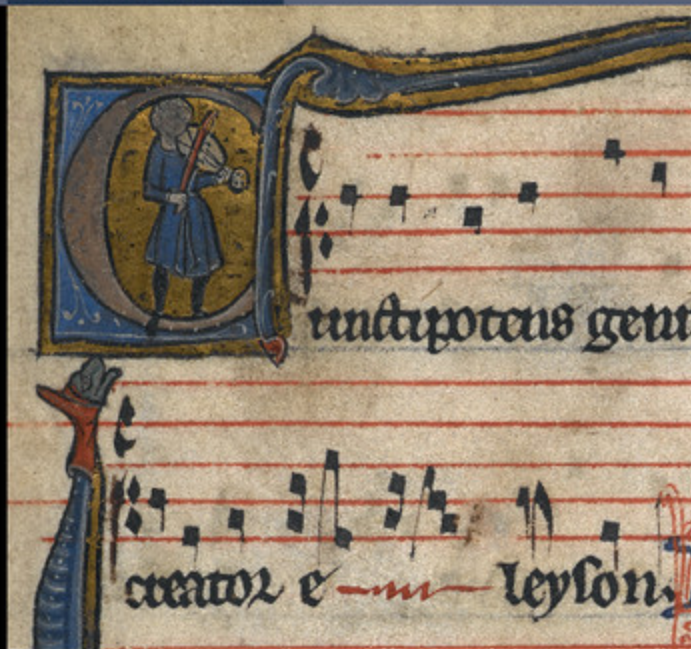 Cunctipotens geni
creator e leyson.